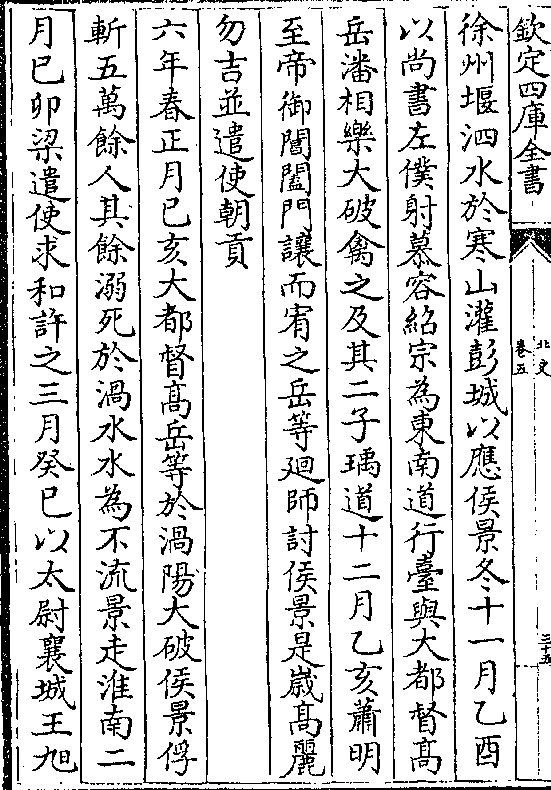 欽定四庫全書
北史
卷五
三十五
徐州堰泗水於寒山灌彭城以應侯景冬十一月乙酉
以尚書左僕射慕容紹宗為東南道行臺與大都督髙
岳潘相樂大破禽之及其二子瑀道十二月乙亥蕭明
至帝御閶闔門讓而宥之岳等廻師討侯景是嵗髙麗
勿吉並遣使朝貢
六年春正月己亥大都督髙岳等於渦陽大破侯景俘
斬五萬餘人其餘溺死於渦水水為不流景走淮南二
月己卯梁遣使求和許之三月癸巳以太尉襄城王旭